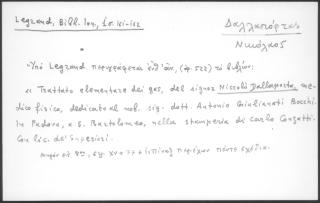 Legrand, Bibl. Ion., Σσ. 151-152
Δαλλαπόρτας
Νικόλαος
Ὑπὸ Legrand περιγράφεται (ἀρ. 522) τὸ βιβλίον:
« Trattato elementare dei gas, del signor Niccolò Dallaporta, me-
dico fisico, dedicato al nob. sig. dott. Antonio Giulianati Bocchi.
In Padova, a S. Bartolomeo, nella stamperia di Carlo Conzatti.
Con lic. de' Superiori.
8ον, σχ. XV + 77 + 1 πίναξ περιέχων πέντε σχέδια.